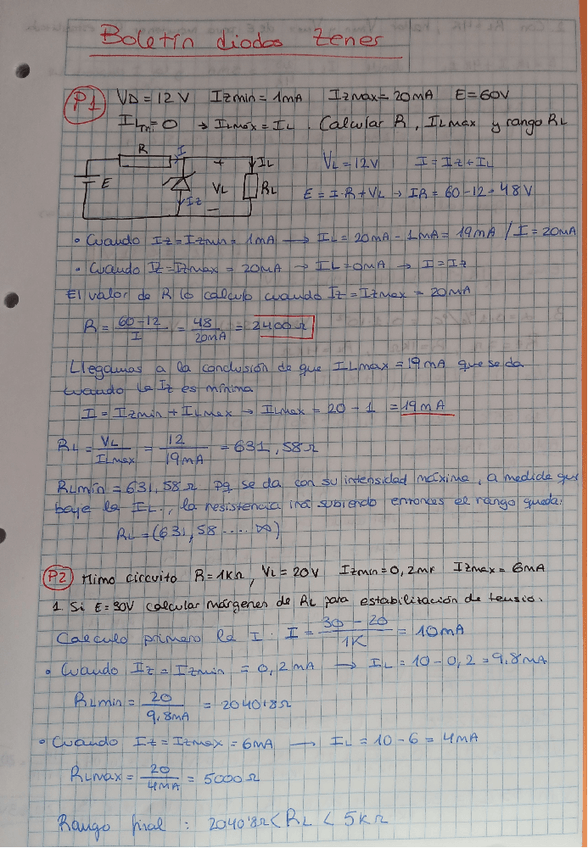 Boletín diodos zener
P1 VD = 12 V Izmin = 1mA Izmax = 20mA E = 60V
ILmin = 0 → ILmáx = IL. Calcular R, ILmax y rango RL
R I + IL VL = 12V I = Iz + IL
E Iz VL RL E = I·R + VL → IR = 60 - 12 = 48 V
-
• Cuando Iz = Izmin = 1mA → IL = 20mA - 1mA = 19mA / I = 20mA
• Cuando Iz = Izmax = 20mA → IL = 0mA → I = Iz
El valor de R lo calculo cuando Iz = Izmax = 20mA
R = 60-12 / I = 48 / 20mA = 2400Ω
Llegamos a la conclusión de que ILmax = 19mA que se da
cuando la Iz es mínima
I = Izmin + ILmax → ILmax = 20 - 1 = 19mA
RL = VL / ILmax = 12 / 19mA = 631,58Ω
RLmín = 631,58Ω pq se da con su intensidad máxima, a medida que
baje la IL, la resistencia irá subiendo entonces el rango queda:
RL = (631,58 .... ∞)
P2 Mimo circuito R = 1KΩ, VL = 20V Izmin = 0,2mA Izmax = 6mA
1. Si E = 30V calcular márgenes de RL para estabilización de tensio.
Calculo primero la I : I = 30 - 20 / 1K = 10mA
• Cuando Iz = Izmin = 0,2mA → IL = 10 - 0,2 = 9,8mA
RLmin = 20 / 9,8mA = 2040'8Ω
• Cuando Iz = Izmax = 6mA → IL = 10 - 6 = 4mA
RLmax = 20 / 4mA = 5000Ω
Rango final : 2040'8Ω < RL < 5KΩ